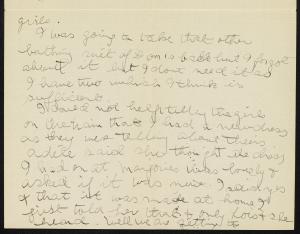 girls.
I was going to take that other
bathing suit of Dons back but I forgot
about it but I dont need it as
I have two which I think is
sufficient.
I could not help telling the girls
on the train that I had a new dress
as they were telling about theirs
adele said she thought the dress
I had on at Marjories was lovely &
asked if it was new. I said yes
& that it was made at home I
just told her that & only hope she
heard. Well we are getting to